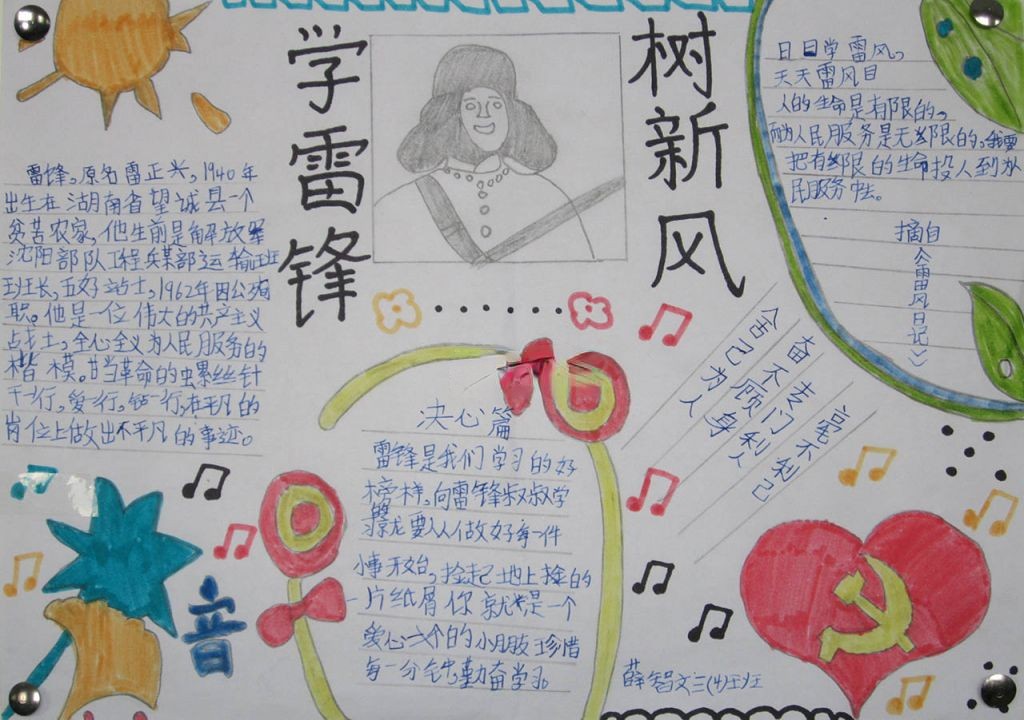 学雷锋
树新风
雷锋，原名雷正兴，1940年
出生在湖南省望城县一个
贫苦农家，他生前是解放军
沈阳部队工程兵某部运输班
班长，五好战士，1962年因公殉
职。他是一位伟大的共产主义
战士，全心全义为人民服务的
楷模。甘当革命的螺丝钉
干一行，爱一行，钻一行，在平凡的
岗位上做出不平凡的事迹。
日日学雷风，
天天雷风日
人的生命是有限的。
为人民服务是无限的，我要
把有限的生命投入到为
民服务中去。
摘自
《雷风日记》
舍己为人
奋不顾身
专门利人
毫不利己
决心篇
雷锋是我们学习的好
榜样，向雷锋叔叔学
习就要从做好每一件
小事开始，捡起地上的
一片纸屑你就是一个
爱心的小朋友珍惜
每一分钟勤奋学习。
音
薛智文三(4)班